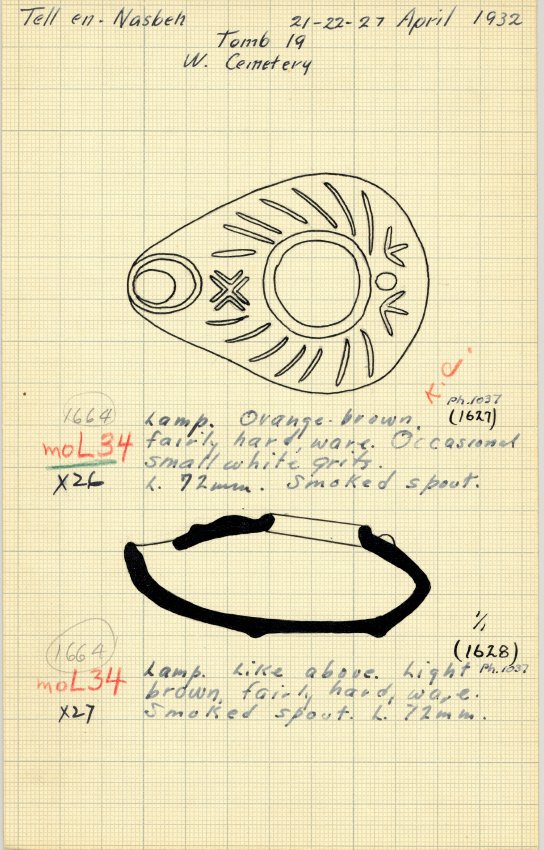 Tell en-Nasbeh 21-22-27 April 1932
Tomb 19
W. Cemetery
K.C.
Ph. 1037
1664 Lamp. Orange-brown, (1627)
moL34 fairly hard, ware. Occasional
small white grits.
X26 L. 72mm. Smoked spout.
1/1
1664 (1628)
Lamp. Like above. Light Ph. 1037
moL34 brown, fairly hard, ware.
X27 Smoked spout. L. 72mm.